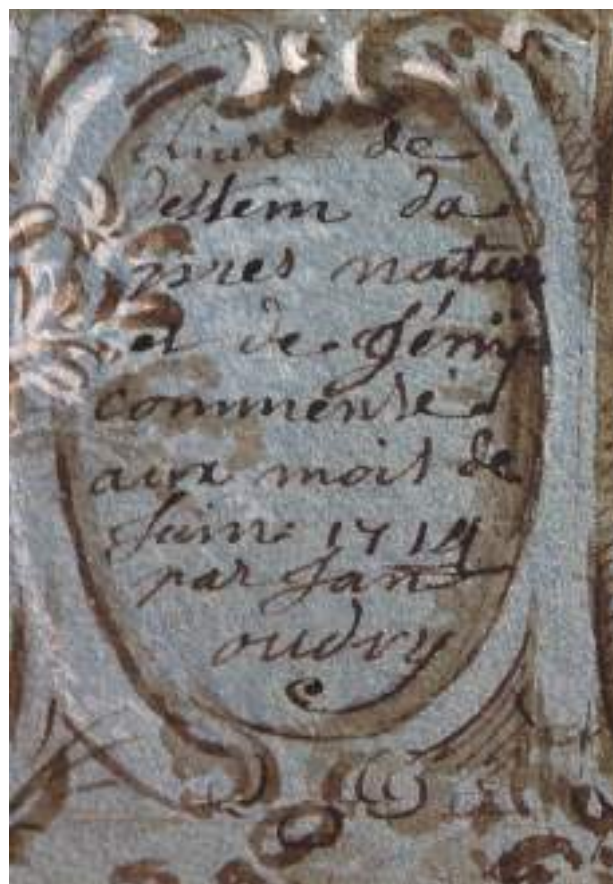 Livre de
dessein da
pres natur
et de Génie
commensé
aux mois de
Juin 1714
par Jan
oudry